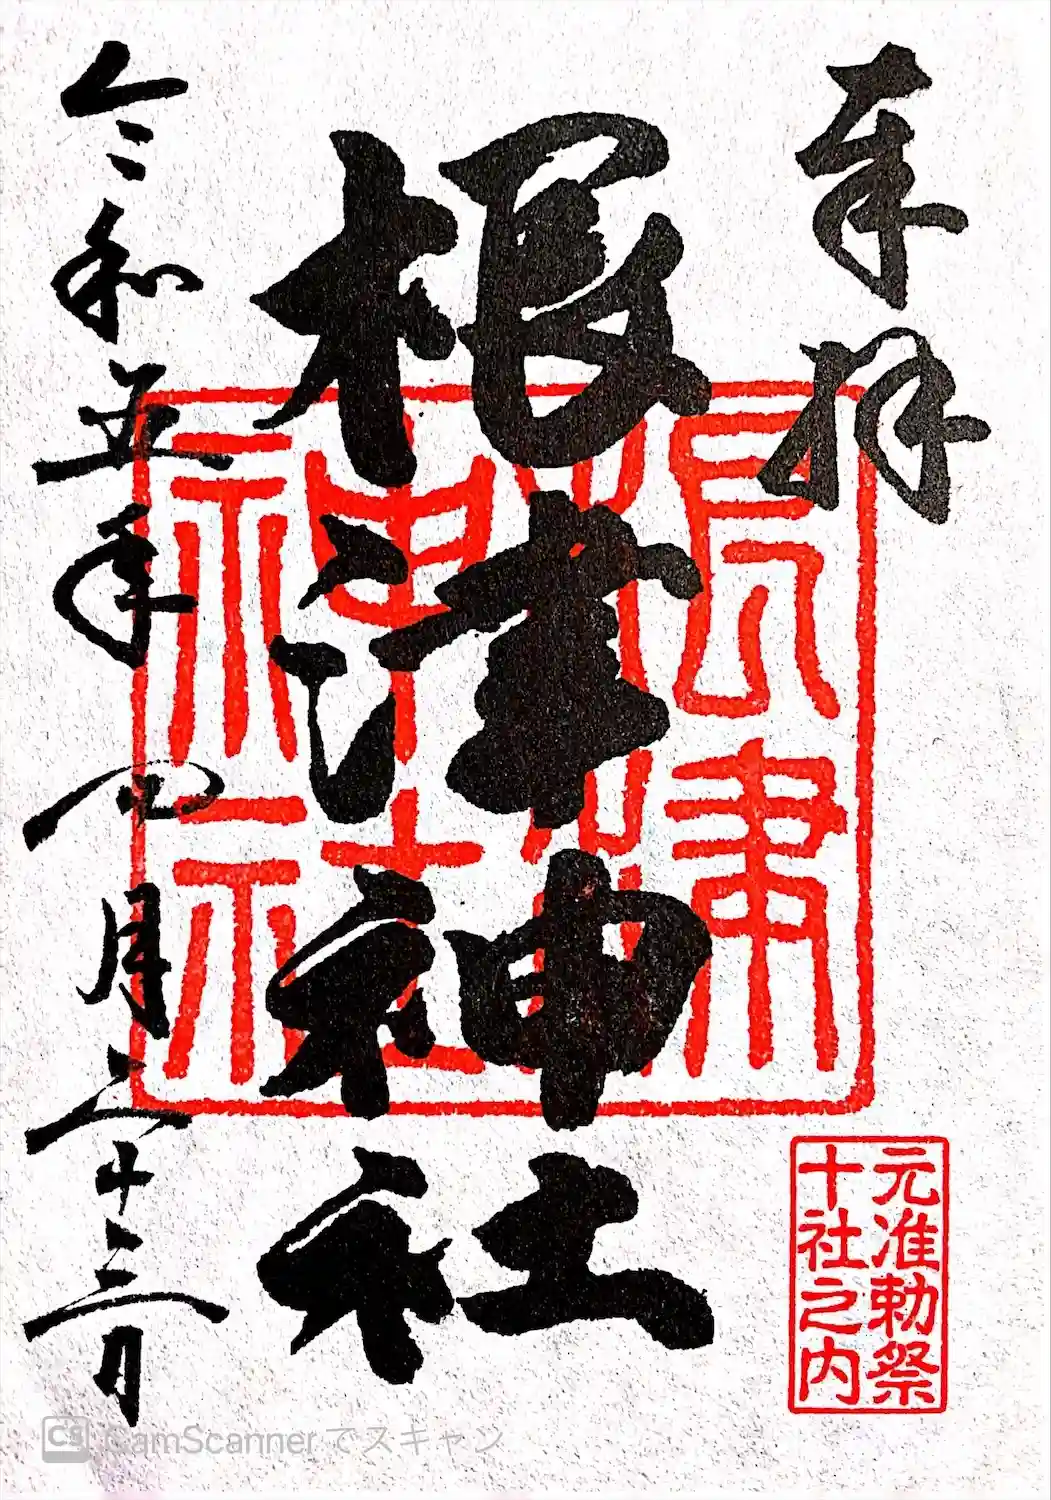 奉拝
根津神社
根津神社
元准勅祭
十社之内
令和五年四月二十三日
CamScannerでスキャン